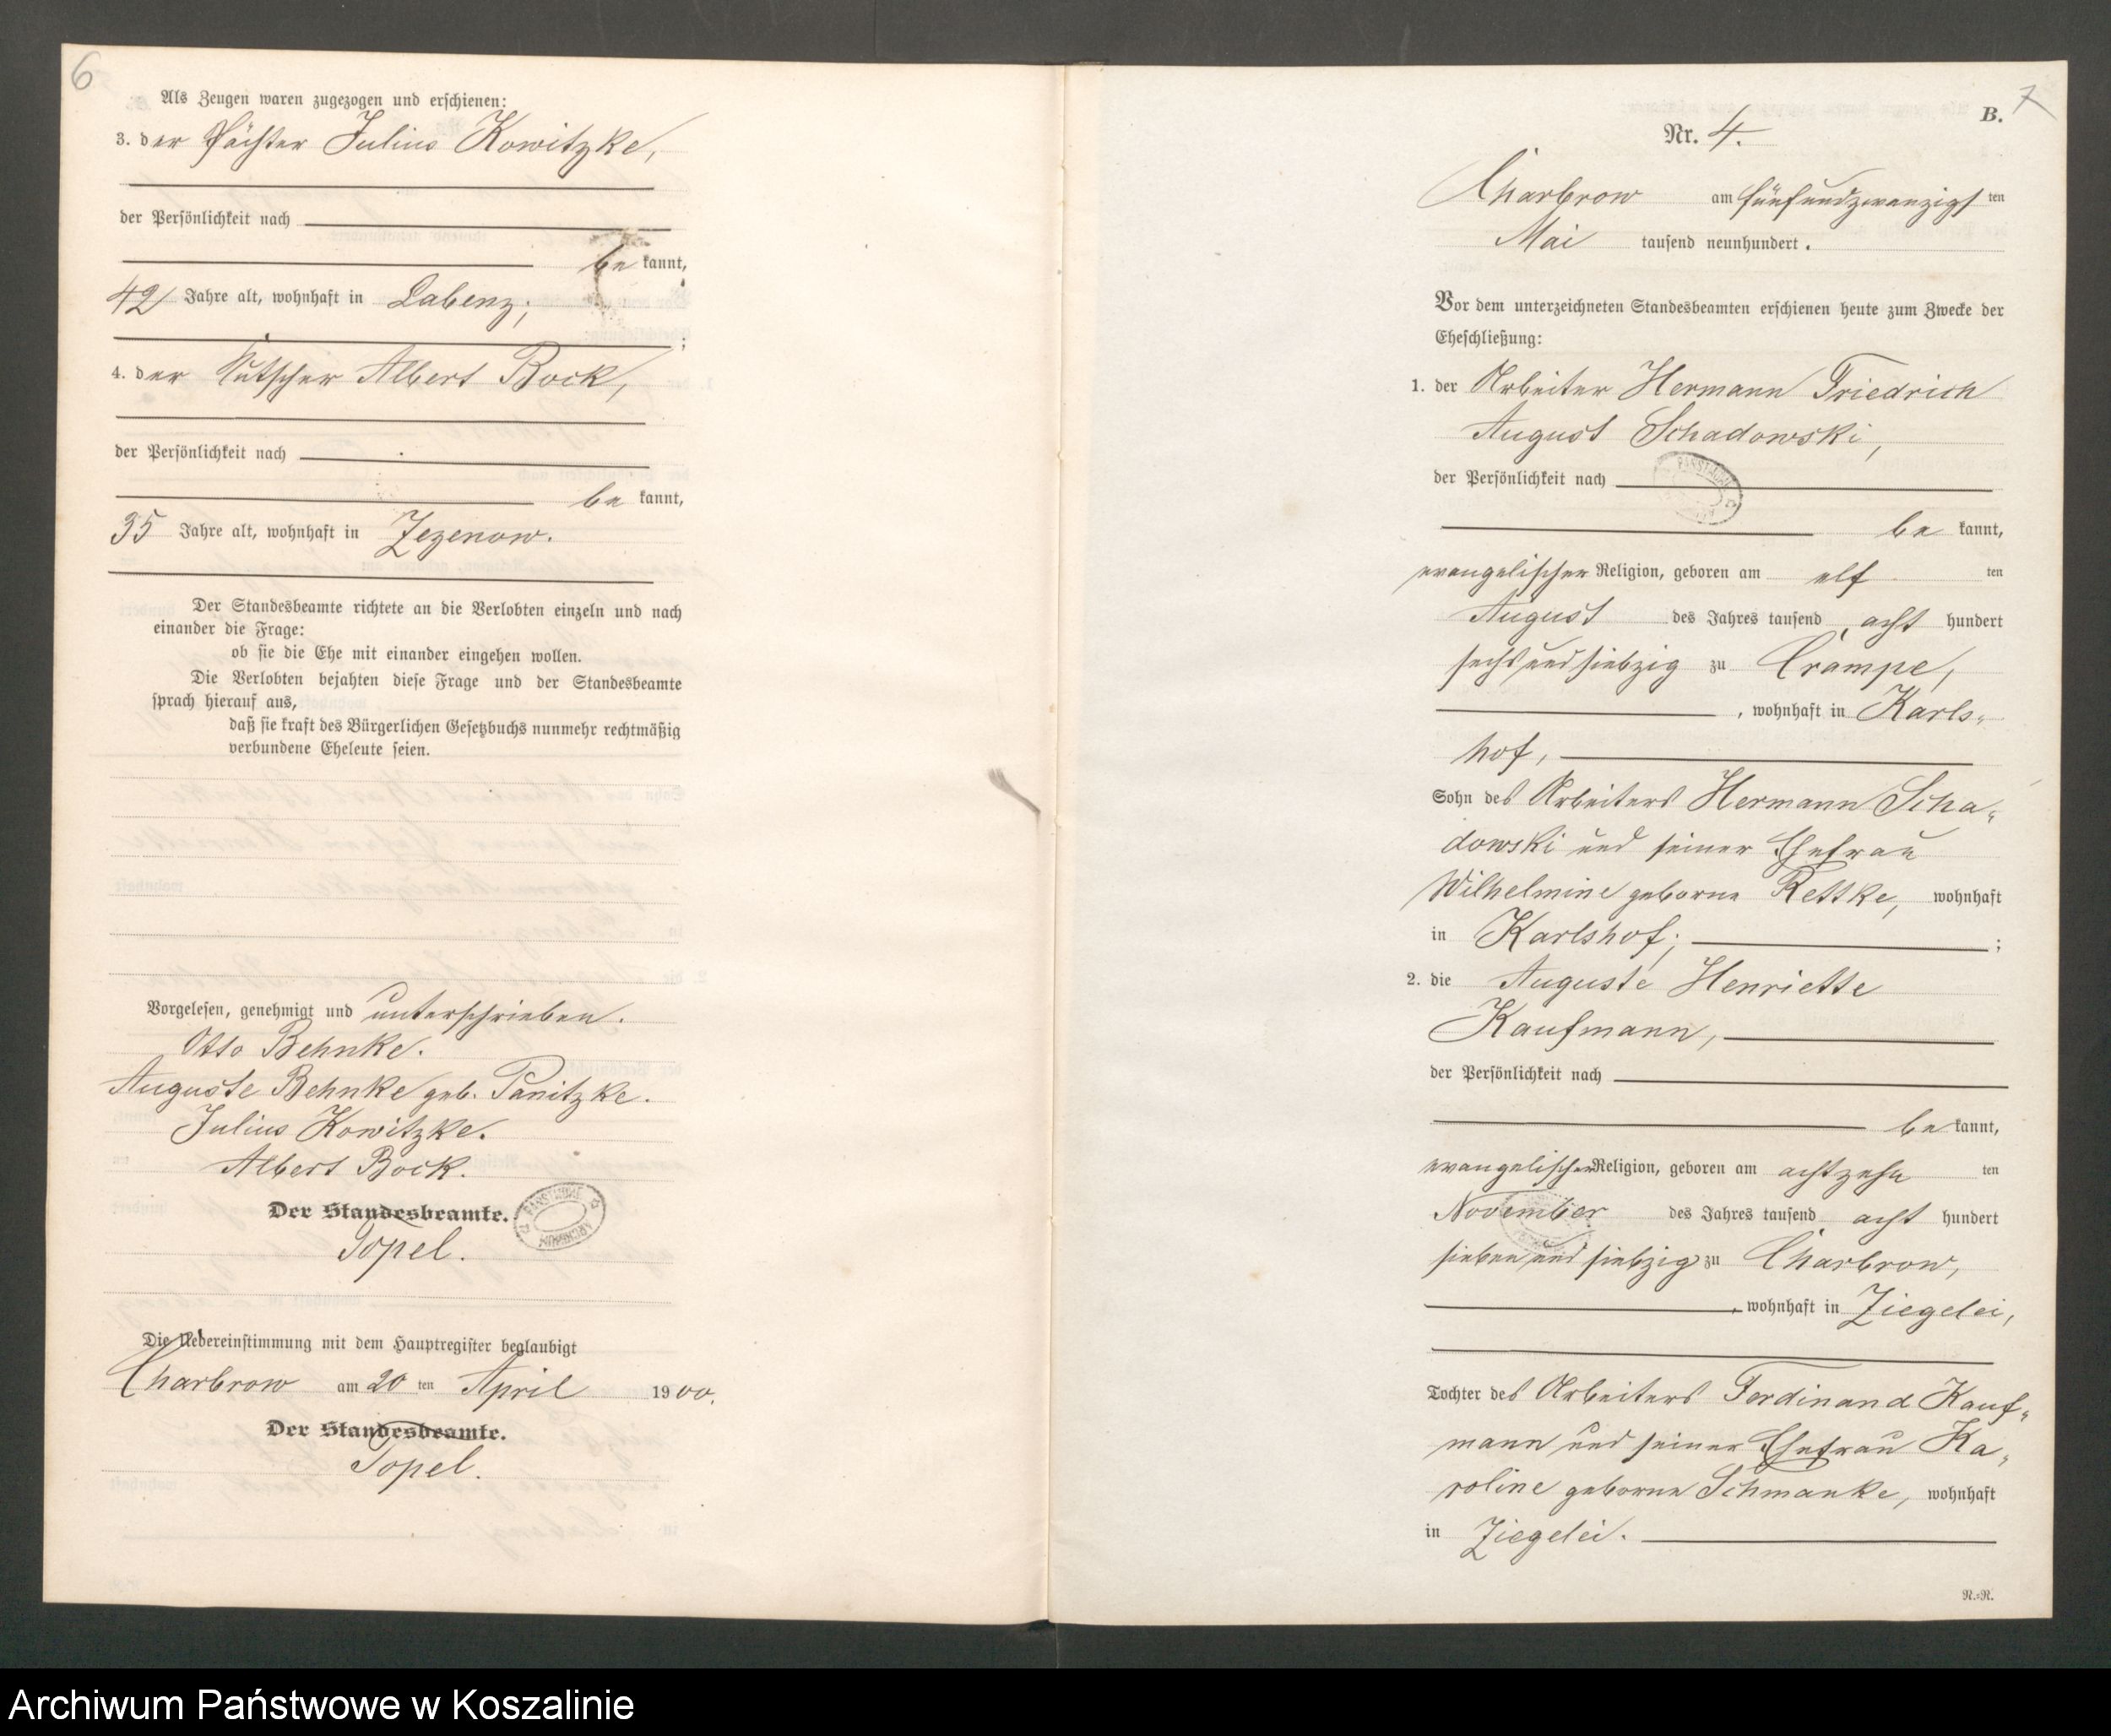 6
Als Zeugen waren zugezogen und erschienen:
3. der Pächter Julius Kowitzke,
der Persönlichkeit nach
be kannt,
42 Jahre alt, wohnhaft in Labenz;
;
4. der Kutscher Albert Bock,
der Persönlichkeit nach
be kannt,
35 Jahre alt, wohnhaft in Zezenow.
Der Standesbeamte richtete an die Verlobten einzeln und nach
einander die Frage:
ob sie die Ehe mit einander eingehen wollen.
Die Verlobten bejahten diese Frage und der Standesbeamte
sprach hierauf aus,
daß sie kraft des Bürgerlichen Gesetzbuchs nunmehr rechtmäßig
verbundene Eheleute seien.
Vorgelesen, genehmigt und unterschrieben.
Otto Behnke.
Auguste Behnke geb. Panitzke.
Julius Kowitzke.
Albert Bock.
Der Standesbeamte.
Topel.
Die Uebereinstimmung mit dem Hauptregister beglaubigt
Charbrow am 20 ten April 1900.
Der Standesbeamte.
Topel.
7
B.
Nr. 4.
Charbrow am fünfundzwanzigs ten
Mai tausend neunhundert.
Vor dem unterzeichneten Standesbeamten erschienen heute zum Zwecke der
Eheschließung:
1. der Arbeiter Hermann Friedrich
August Schadowski,
der Persönlichkeit nach
be kannt,
evangelischer Religion, geboren am elf ten
August des Jahres tausend acht hundert
sechs und siebzig zu Crampe,
, wohnhaft in Karls-
hof,
Sohn des Arbeiters Hermann Scha-
dowski und seiner Ehefrau
Wilhelmine geborne Rettke, wohnhaft
in Karlshof; ;
2. die Auguste Henriette
Kaufmann,
der Persönlichkeit nach
be kannt,
evangelischer Religion, geboren am achtzehn ten
November des Jahres tausend acht hundert
sieben und siebzig zu Charbrow,
, wohnhaft in Ziegelei,
Tochter des Arbeiters Ferdinand Kauf-
mann und seiner Ehefrau Ka-
roline geborne Schmanke, wohnhaft
in Ziegelei.
R.=R.
Archiwum Państwowe w Koszalinie